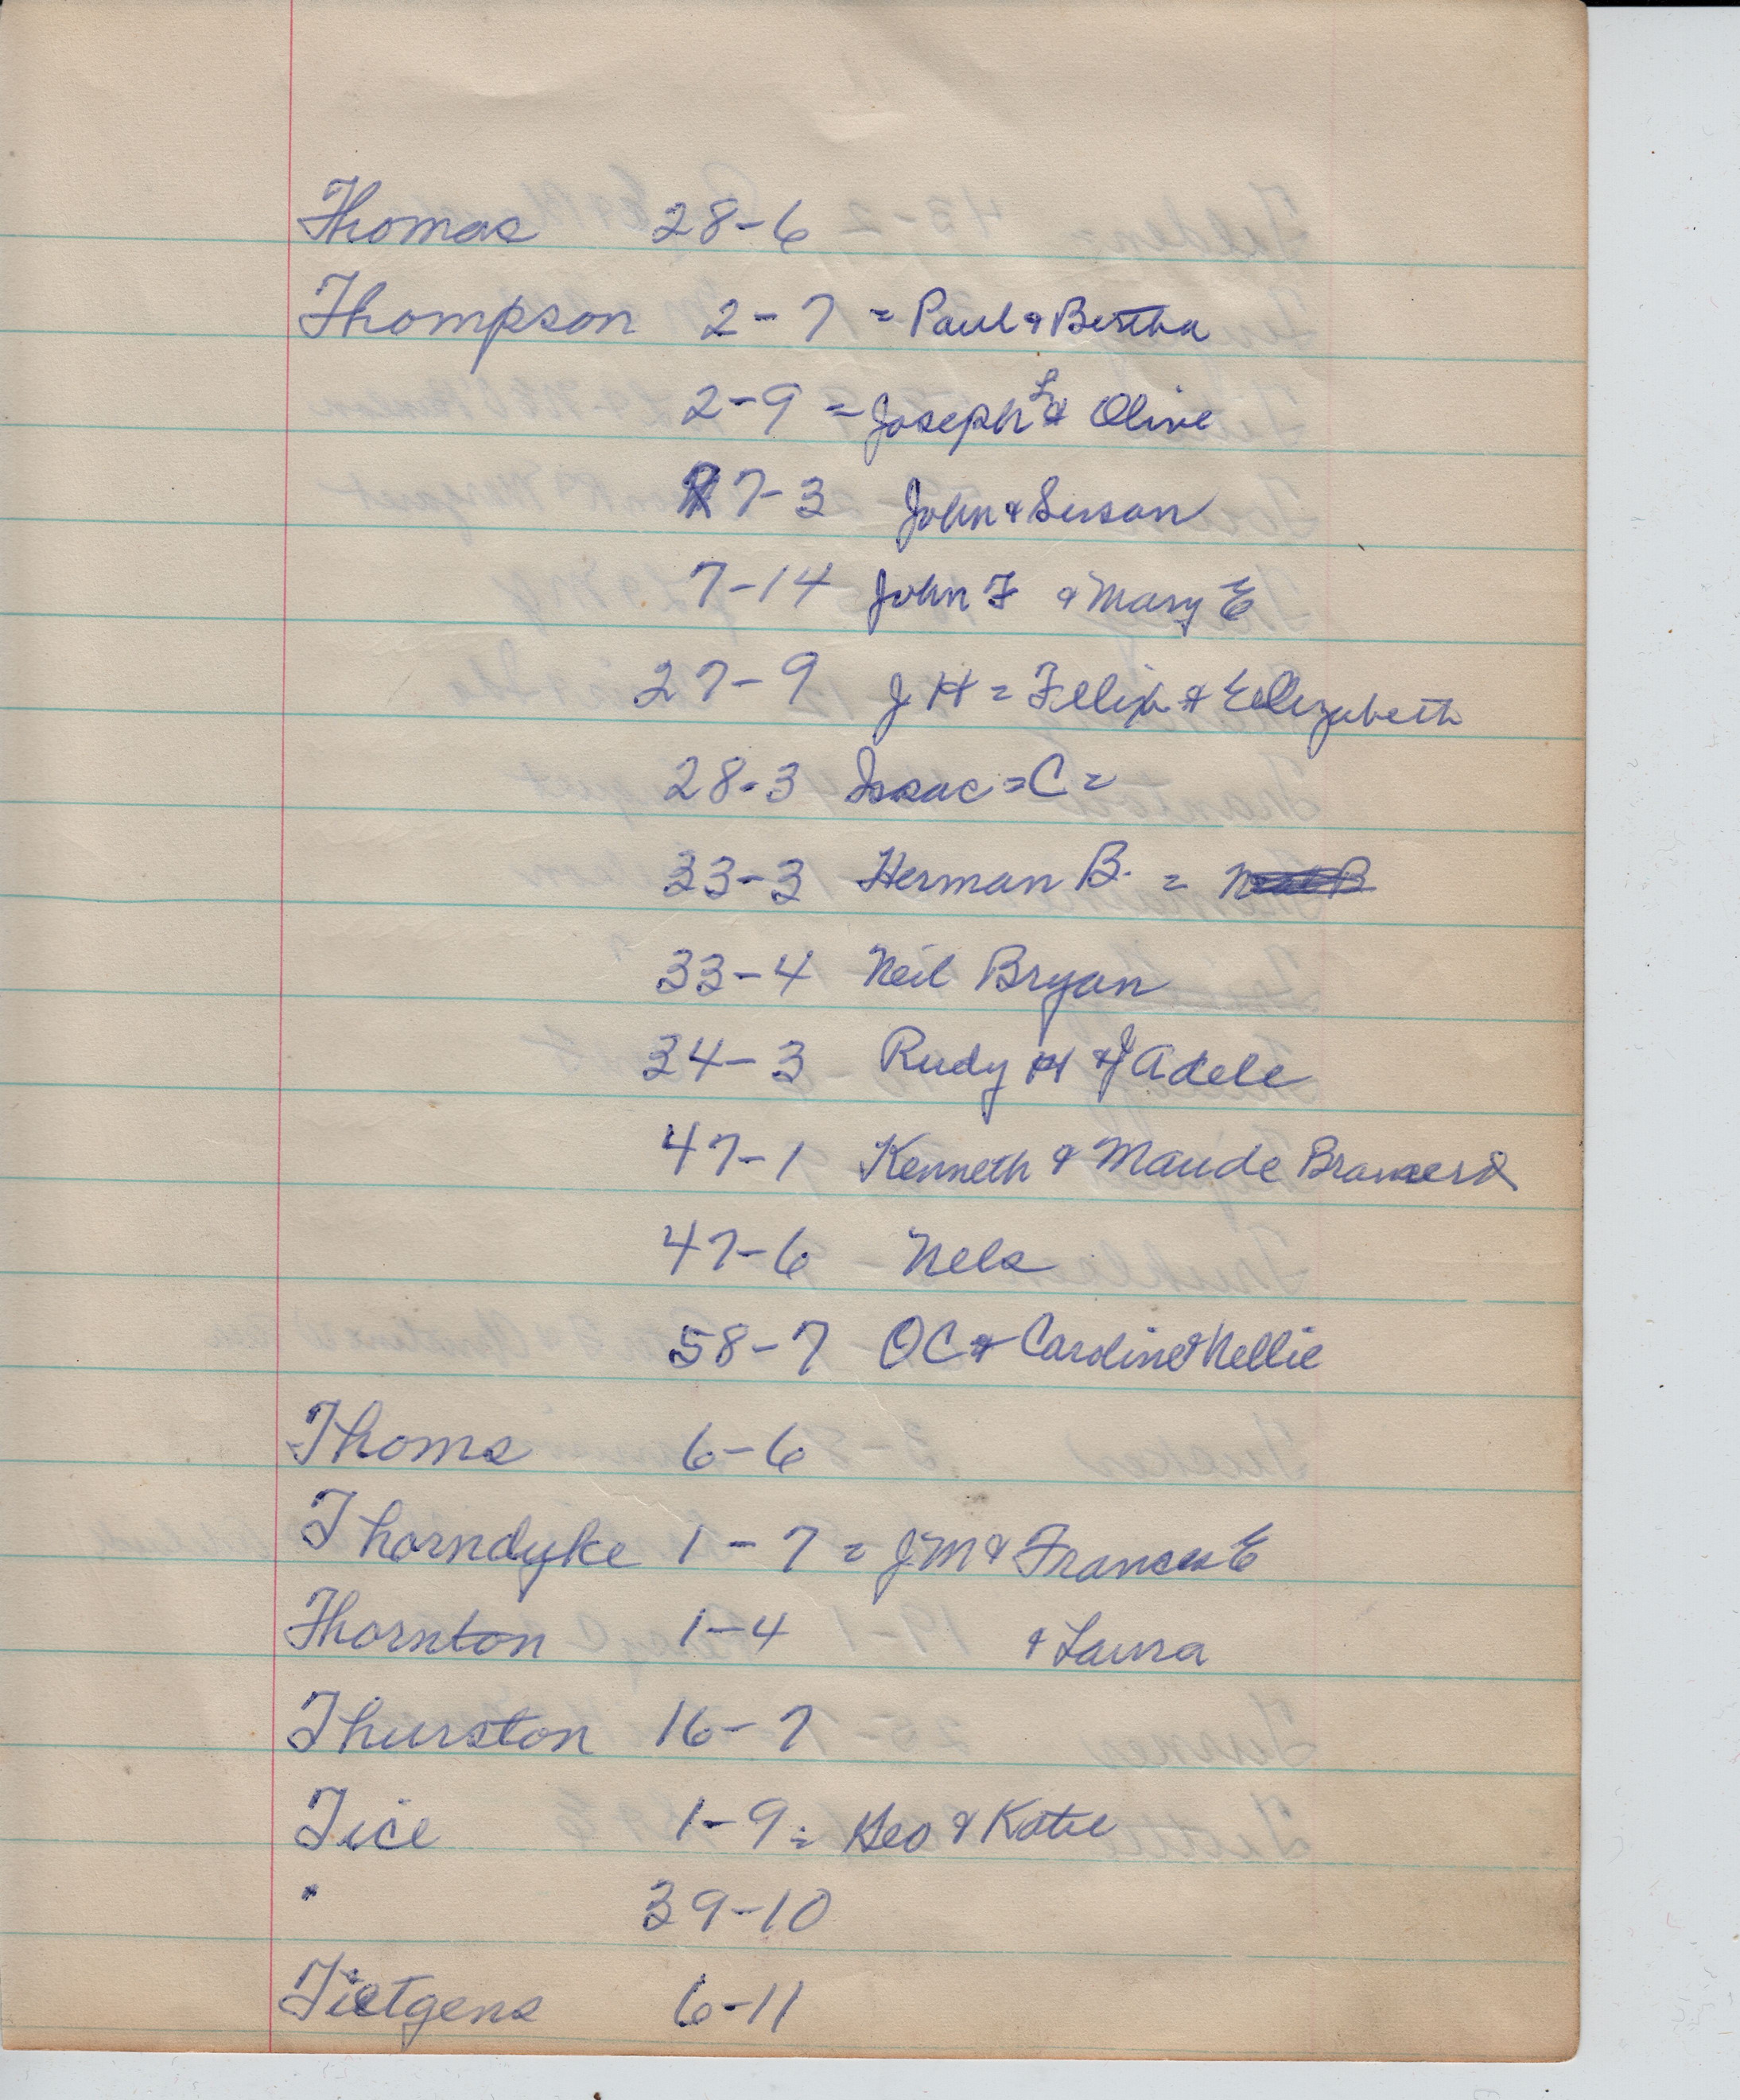 Thomas 28-6
Thompson 2-7 = Paul & Bertha
2-9 = Joseph L & Olive
7-3 John & Susan
7-14 John F & Mary E
27-9 J H = & Elizabeth
28-3 Isaac = C =
33-3 Herman B. =
33-4 Neil Bryan
34-3 Rudy H & J Adele
47-1 Kenneth & Maude
47-6 Nels
58-7 OC & Caroline & Nellie
Thoms 6-6
Thorndyke 1-7 = J M & Frances E
Thornton 1-4 & Laura
Thurston 16-7
Tice 1-9 = Geo & Katie
" 39-10
Tietgens 6-11